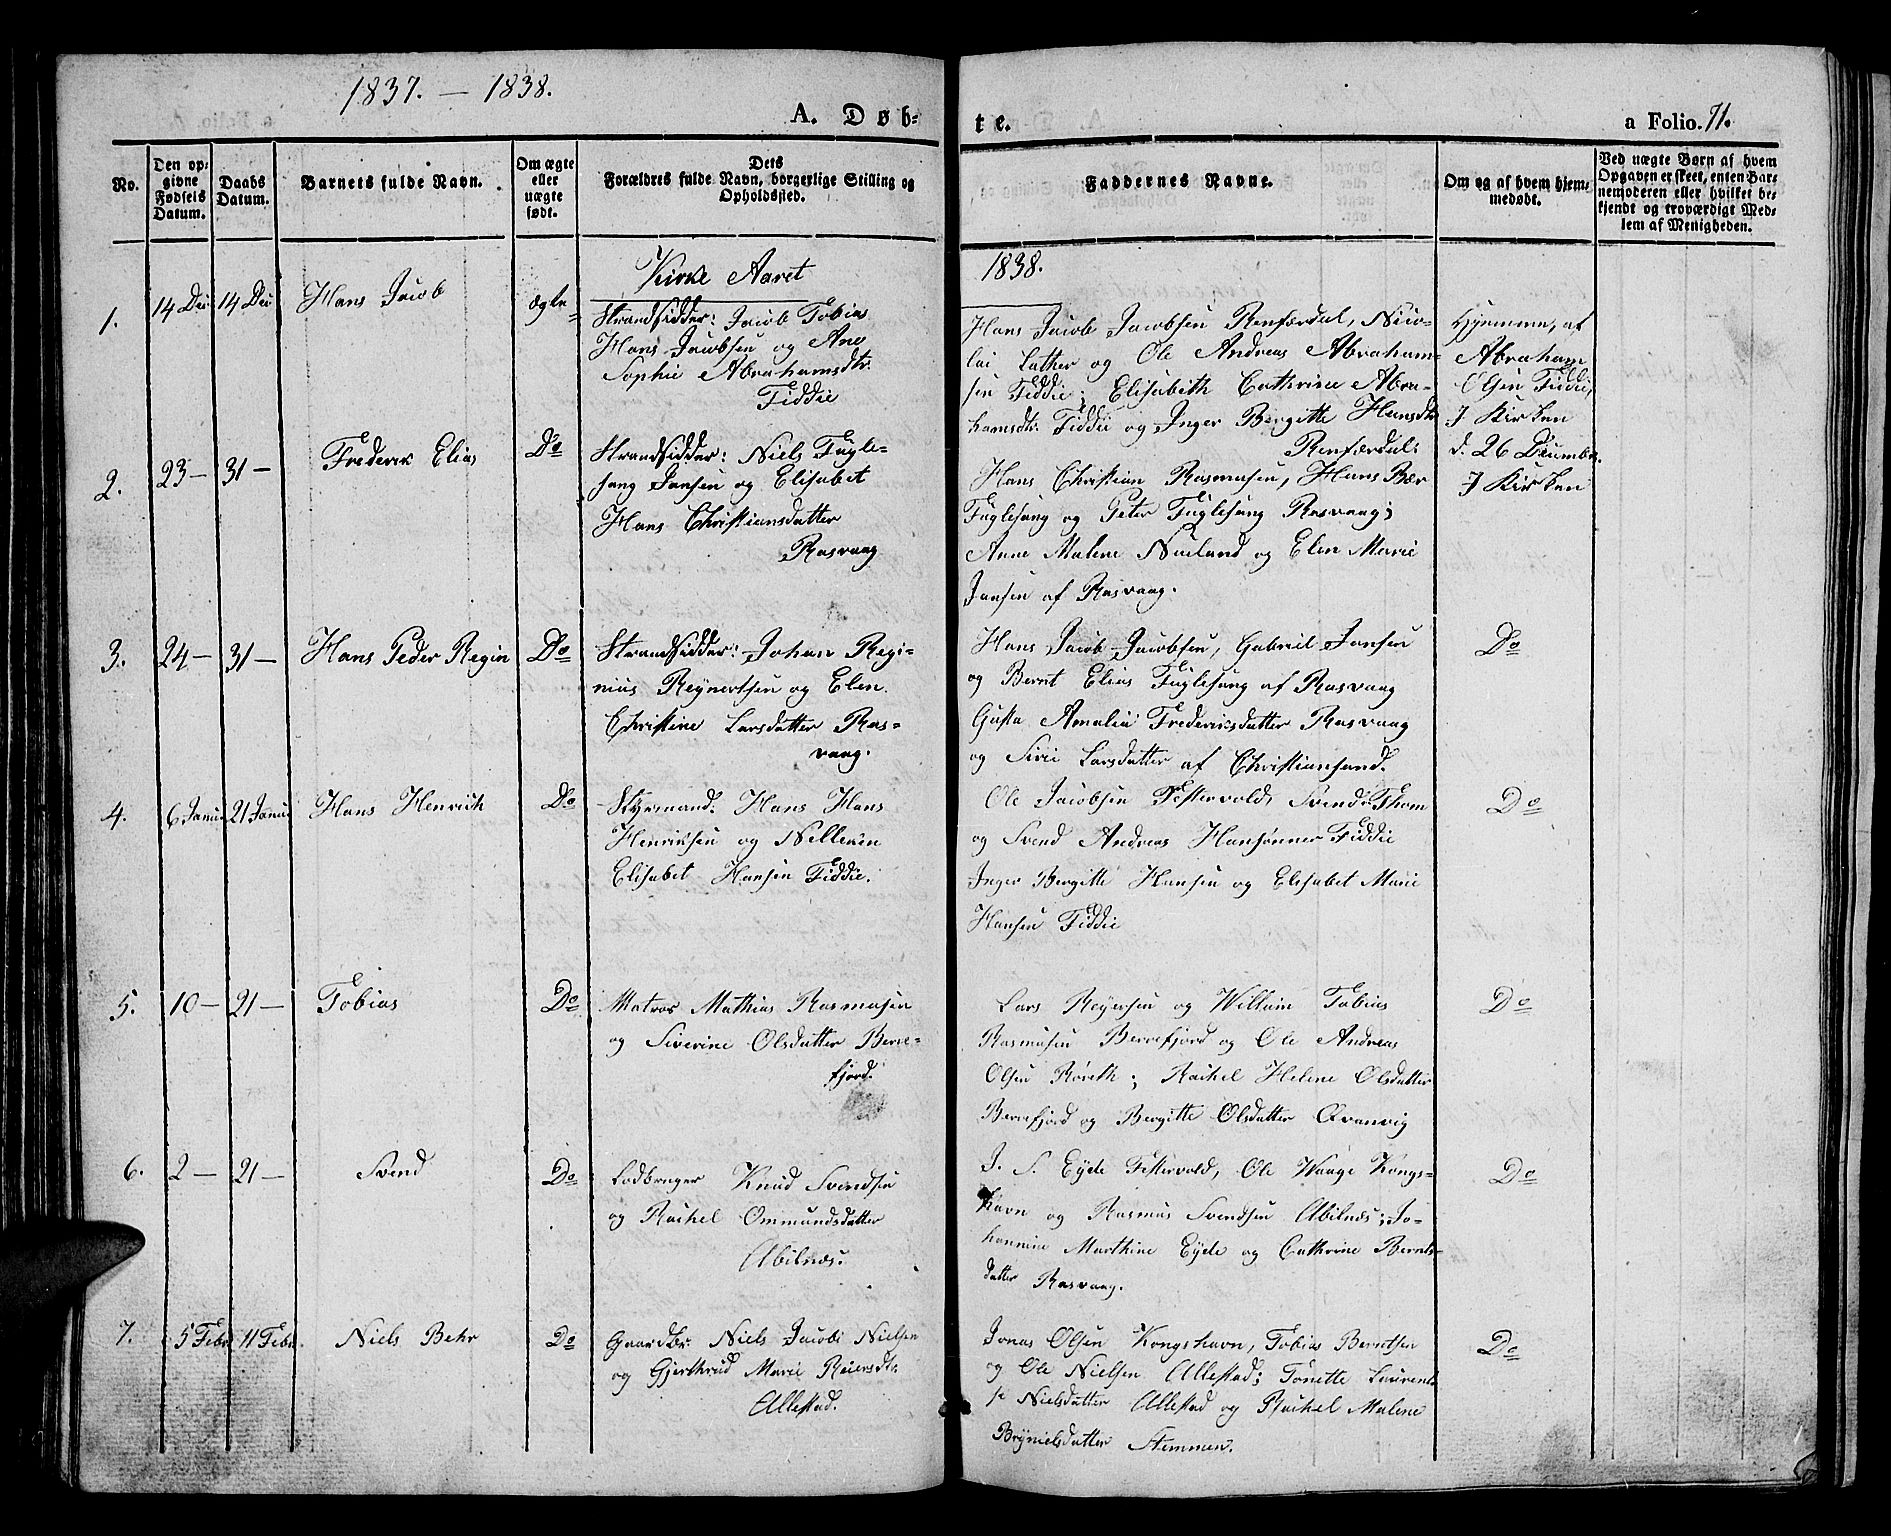 1837. — 1838.
A. Døb-
te.
a Folio. 71.
No.
Den op-
givne
Fødsels
Datum.
Daabs
Datum.
Barnets fulde Navn.
Om ægte
eller
uægte
født.
Dets
Forældres fulde Navn, borgerlige Stilling og
Opholdssted.
Faddernes Navne.
Om og af hvem hjem-
medøbt.
Ved uægte Børn af hvem
Opgaven er skeet, enten Bar-
nemoderen eller hvilket be-
kjendt og troværdigt Med-
lem af Menigheden.
Kirke Aaret
1838.
1. 14 Dec 14 Dec Hans Jacob ægte
Strandsidder: Jacob Tobias
Hans Jacobsen og Ane
Sophie Abrahamsdtr.
Fiddie
Hans Jacob Jacobsen Renfærdal, Nico-
lai Lather og Ole Andreas Abraham-
sen Fiddie; Elisabeth Cathrine Abra-
hamsdtr. Fiddie og Inger Bergitte Hansdtr
Renfærdal:
Hjemmen, af
Abraham
Olsen Fiddie,
I Kirken
d. 26 December.
2. 23 — 31 — Frederik Elias Do
Strandsidder: Niels Fugle-
sang Jansen og Elisabet
Hans Christiansdatter
Rasvaag
Hans Christian Rasmusen, Hans Bær
Fuglesang og Peter Fuglesang Rasvaag;
Anne Malene Nueland og Elen Marie
Jansen af Rasvaag.
I Kirken
3. 24 — 31 — Hans Peder Regin Do
Strandsidder: Johan Regi-
nius Reynertsen og Elen
Christine Larsdatter Ras-
vaag.
Hans Jacob Jacobsen, Gabriel Jansen
og Bernt Elias Fuglesang af Rasvaag
Gusta Amalia Frederiksdatter Rasvaag
og Sirie Larsdatter af Christiansand.
Do
4. 6 Janur 21 Janur Hans Henrich Do
Styrmand. Hans Hans
Henriksen og Nelleken
Elisabet Hansen Fiddie.
Ole Jacobsen Festervold, Svend Thom
og Svend Andreas Hansønner Fiddie
Inger Bergitte Hansen og Elisabet Marie
Hansen Fiddie
Do
5. 10 — 21 — Tobias Do
Matros Mathias Rasmusen
og Siverine Olsdatter Berre-
fjord.
Lars Reyersen og Willum Tobias
Rasmusen Berrefjord og Ole Andreas
Olsen Røseth; Rachel Helene Olsdatter
Berrefjord og Bergitte Olsdatter Qvanvig
Do
6. 2 — 21 — Svend Do
Lodbruger Knud Svendsen
og Rachel Ommundsdatter
Abilnæs.
J. S. Eyde Festervold, Ole Waage Kongs-
havn og Rasmus Svendsen Abilnæs; Jo-
hannine Marthine Eyde og Cathrine Bernts-
datter Rasvaag.
Do
7. 5 Febr 11 Febr. Niels Behr Do
Gaardbr. Niels Jacobs Nielsen
og Gjerthrud Marie Reiersdtr
Allestad.
Jonas Olsen Kongshavn, Tobias Berntsen
og Ole Nielsen Allestad; Tonette Laurent-
se Nielsdatter Allestad og Rachel Malene
Brynielsdatter Stemmen.
Do